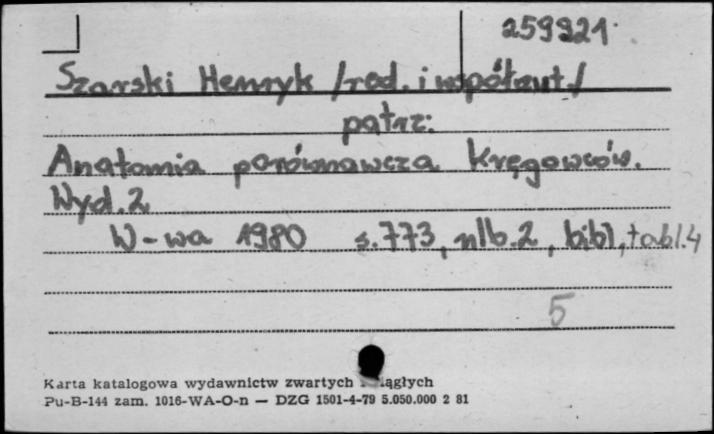 259921
Szarski Henryk /red. i współaut./
patrz:
Anatomia porównawcza Kręgowców.
Wyd. 2
W-wa 1980 s. 773, nlb. 2, bibl, tabl. 4
5
Karta katalogowa wydawnictw zwartych iągłych
Pu-B-144 zam. 1016-WA-O-n — DZG 1501-4-79 5.050.000 2 81